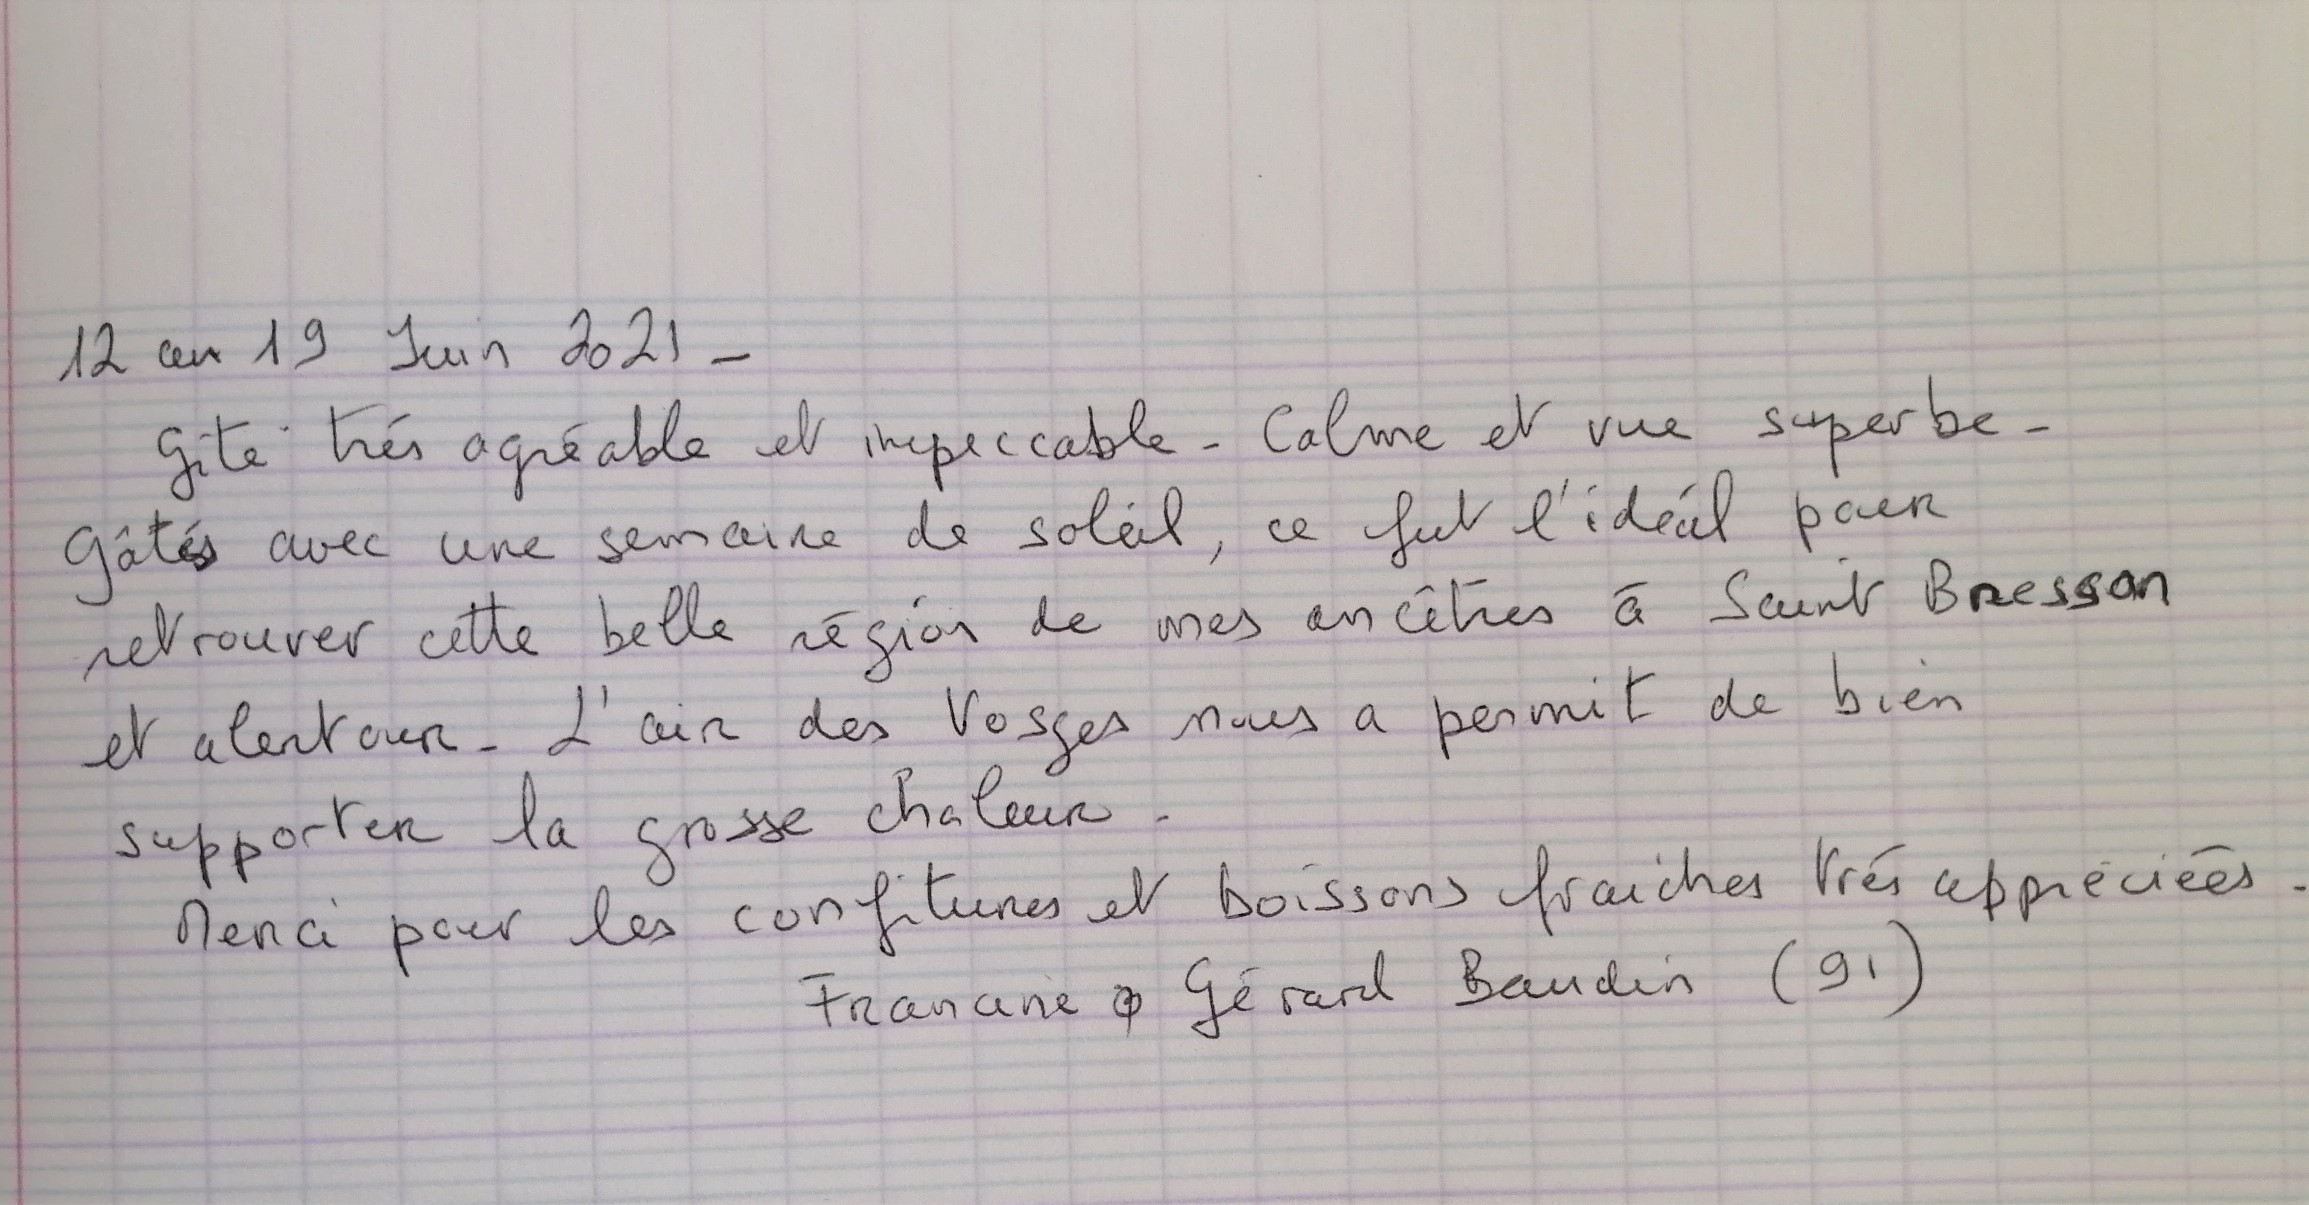 12 au 19 Juin 2021 -
Gîte très agréable et impeccable - Calme et vue superbe -
Gâtés avec une semaine de soleil, ce fut l'idéal pour
retrouver cette belle région de mes ancêtres à Saint Bresson
et alentour - L'air des Vosges nous a permit de bien
supporter la grosse chaleur .
Merci pour les confitures et boissons fraiches très appréciées .
Francine & Gérard Baudin (91)